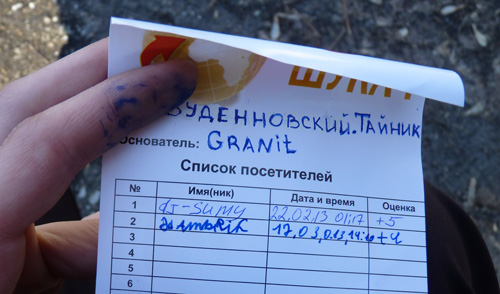 ШУКА
БУДЕННОВСКИЙ.ТАЙНИК
Основатель: GRANIt
Список посетителей
№ Имя(ник) Дата и время Оценка
1 dj-sumy 22,02.13 01:17 +5
2 17,03,013,14: +4
3
4
5
6